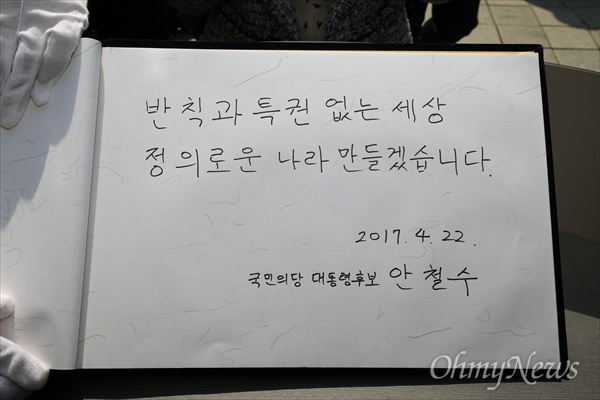 반칙과 특권 없는 세상
정의로운 나라 만들겠습니다.
2017. 4. 22.
국민의당 대통령후보 안철수
OhmyNews